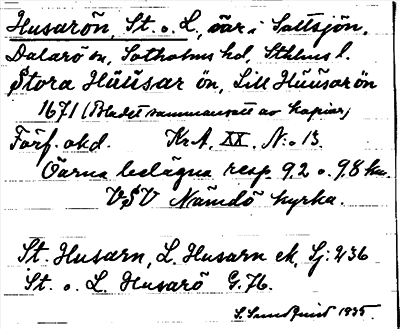 Husarön, St. o. L., öar i Saltsjön,
Dalarö sn, Sotholms hd, Sthlms l.
Stora Hüüsar ön, Lill Hüüsar ön
1671 (Bladet sammansatt av kopior)
Förf. okd. Kr.A. XX. N:o 13.
Öarna belägna resp. 9,2 o. 9,8 km.
VSV Nämdö kyrka.
St. Husarn, L. Husarn ek. Sj: 236
St. o. L. Husarö G. 76.
S. Sundquist 1935.